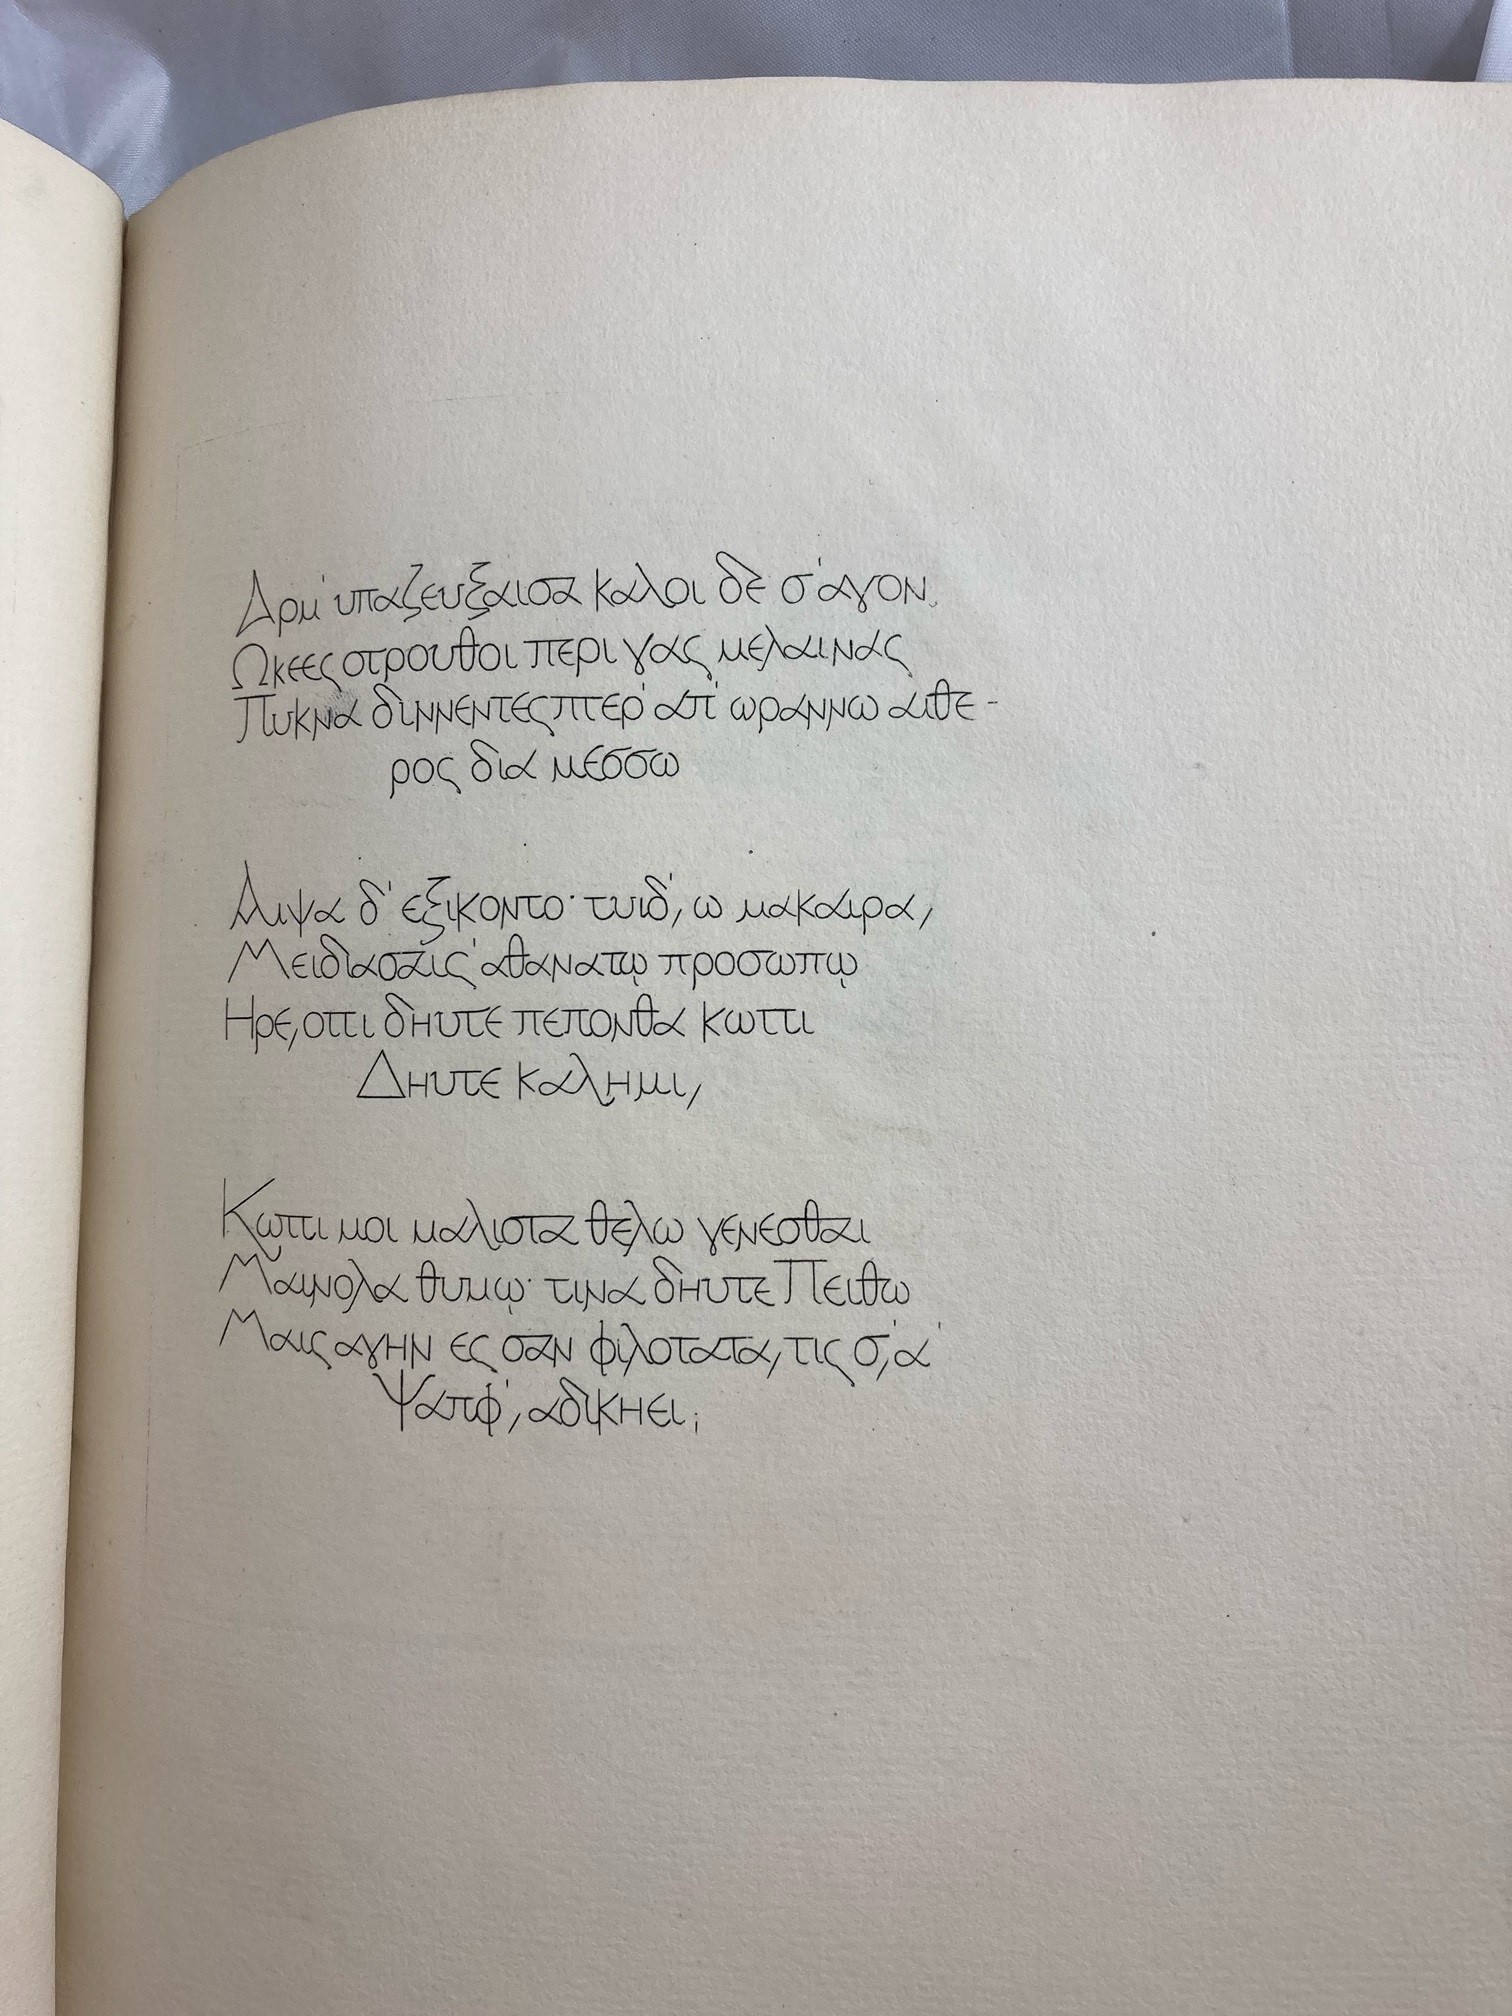 Αρμ' υπαζευξαισα καλοι δε σ'αγον.
Ωκεες στρουθοι περι γας μελαινας
Πυκνα διννεντες πτερ' απ' ωραννω αιθε-
ρος δια μεσσω
Αιψα δ' εξικοντο· τυιδ', ω μακαιρα,
Μειδιασαις' αθανατῳ προσωπῳ
Ηρε, οττι δηυτε πεπονθα κωττι
Δηυτε καλημι,
Κωττι μοι μαλιστα θελω γενεσθαι
Μαινολα θυμῳ· τινα δηυτε Πειθω
Μαις αγην ες σαν φιλοτατα, τις σ', α'
Ψαπφ', αδικηει;